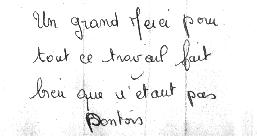 Un grand Merci pour
tout ce travail fait
bien que n'étant pas
Pontois